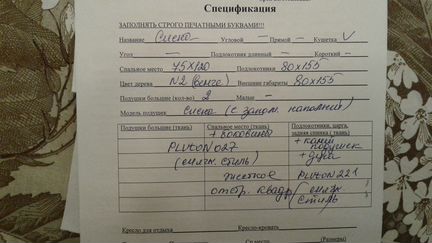 Спецификация
ЗАПОЛНЯТЬ СТРОГО ПЕЧАТНЫМИ БУКВАМИ!!!
Название Сиена Угловой — Прямой — Кушетка V
Угол — Подлокотник длинный — Короткий —
Спальное место 75х120 Подлокотники 80х155
Цвет дерева N2 (венге) Внешние габариты 80х155
Подушки большие (кол-во) 2 Малые —
Модель подушки Сиена (с
Подушки большие (ткань) Спальное место (ткань) Подлокотники, царга, задняя спинка (ткань)
+ боковина + кант
PLUTON 027 подушек
стиль) + царга
PLUTON 221
отстр. квадр
стиль
Кресло для отдыха Кресло-кровать
(Размеры)